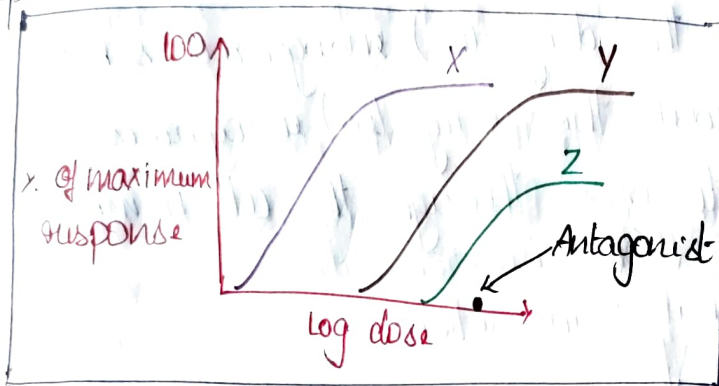 100
X
Y
% of maximum
response
Z
Antagonist
Log dose